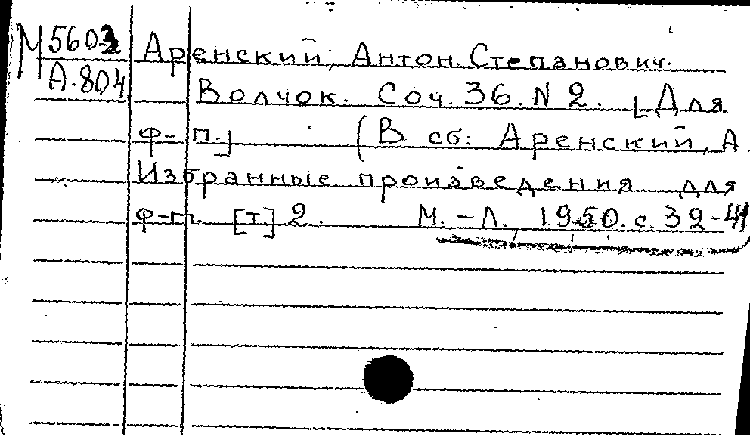 М 5603 Аренский, Антон Степанович.
А.804 Волчок. Соч. 36. N 2. [Для
ф-п.] (В сб: Аренский, А
Избранные произведения для
ф-п. [т] 2. М.-Л., 1950. с. 32-41